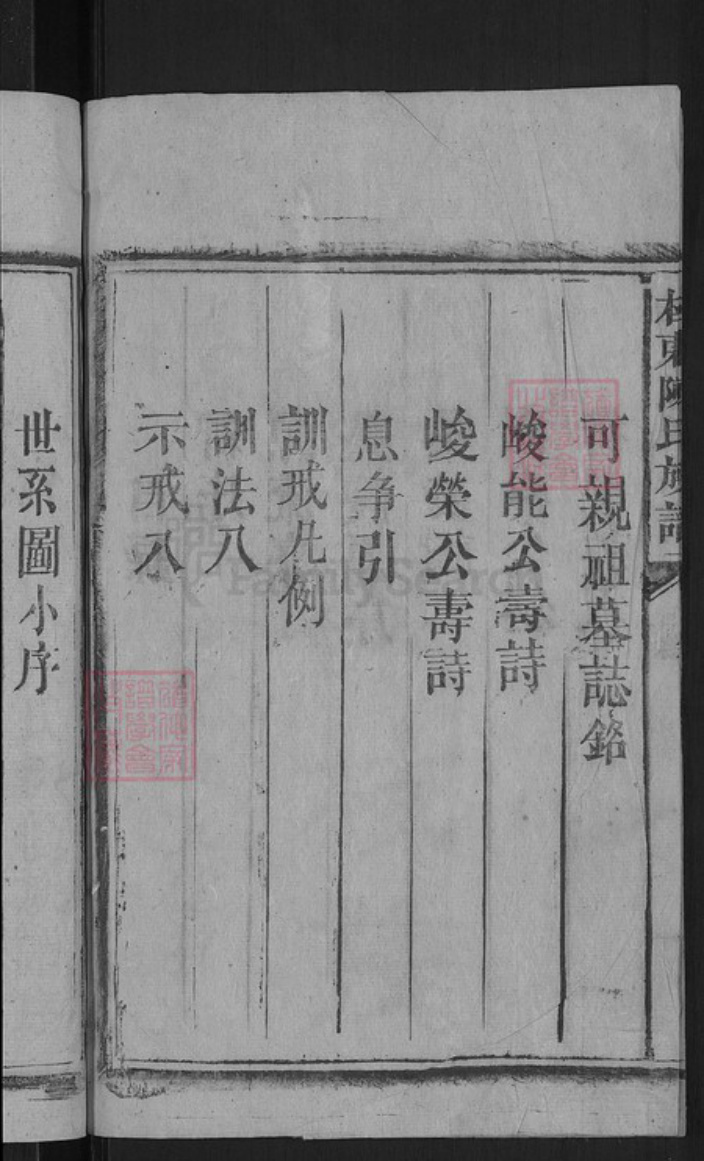 東陳氏族譜
可親祖墓誌銘
峻能公壽詩
峻榮公壽詩
息争引
訓戒凡例
訓法八
示戒八
世系圖小序
FamilySearch